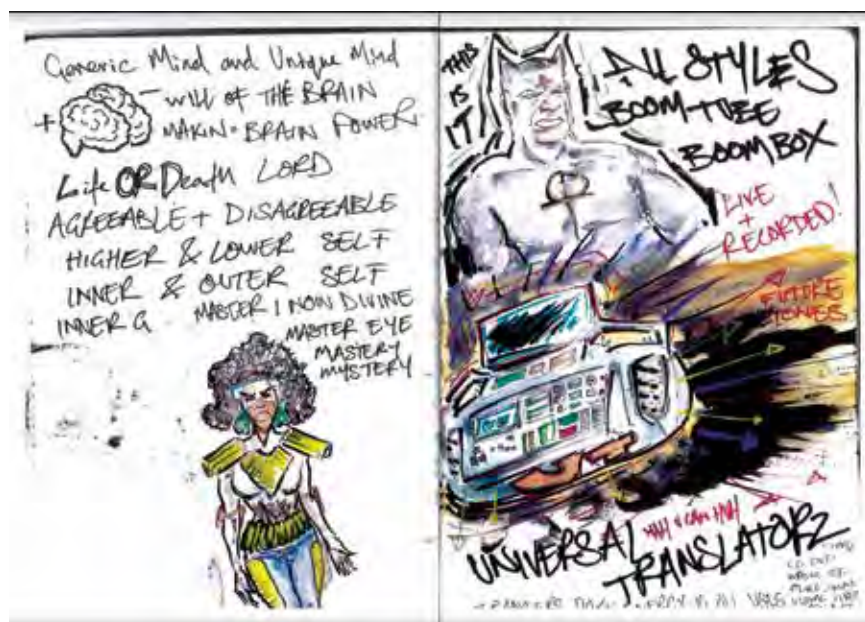 Generic Mind and Unique Mind
+ - WILL OF THE BRAIN
MAKIN BRAIN POWER
Life OR Death LORD
AGREEABLE + DISAGREEABLE
HIGHER & LOWER SELF
INNER & OUTER SELF
INNER G MASTER I NOW DIVINE
MASTER EYE
MASTERY
MYSTERY
THIS
IS
IT
ALL STYLES
BOOM-TUBE
BOOM BOX
LIVE
+
RECORDED!
FUTURE
UNIVERSAL
TRANSLATORZ